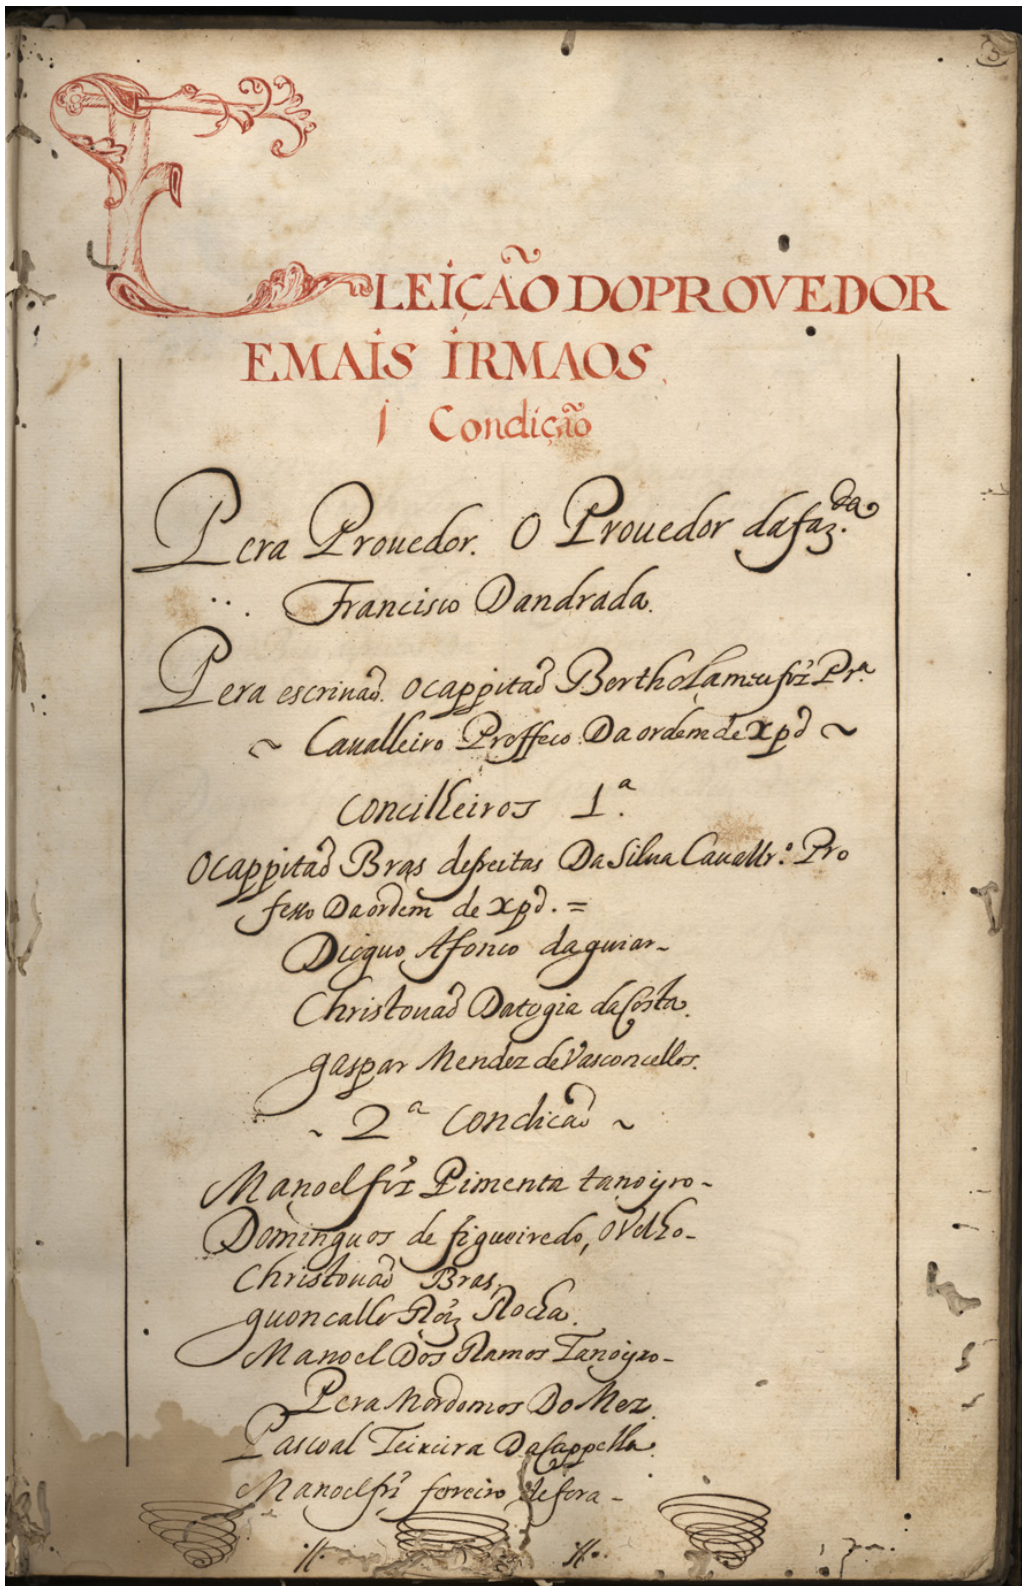 5
ELEIÇÃO DO PROVEDOR
E MAIS IRMAOS
1 Condição
Pera Prouedor. O Prouedor da faz.da
Francisco Dandrada.
Pera escriuaõ. o cappitaõ Bertholameu frz Pr.a
~ Caualleiro Proffeco Da ordem de xpõ ~
Concilheiros 1.a
O cappitaõ Bras de freitas Da Silua Cauallr.o Pro
fesso Da ordem de xpõ. =
Dioguo Afonco daguiar ~
Christouaõ Datogia da Costa.
gaspar Mendez de Vasconcellos.
~ 2a Condicaõ ~
Manoel frz Pimenta tanoyro ~
Dominguos de figueiredo, o Velho ~
Christouaõ Bras,
guoncallo Roiz Rocha.
Manoel Dos Ramos Tanoyro ~
Pera Mordomos Do Mez
Pascoal Teixeira Da Cappella.
Manoel frz foreiro de fora ~